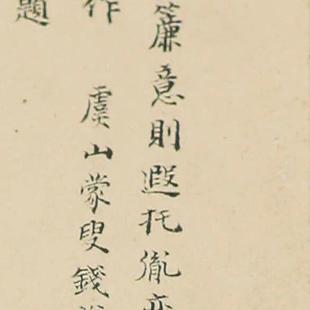 簾意則遐托胤
作
虞山蒙叟錢
題